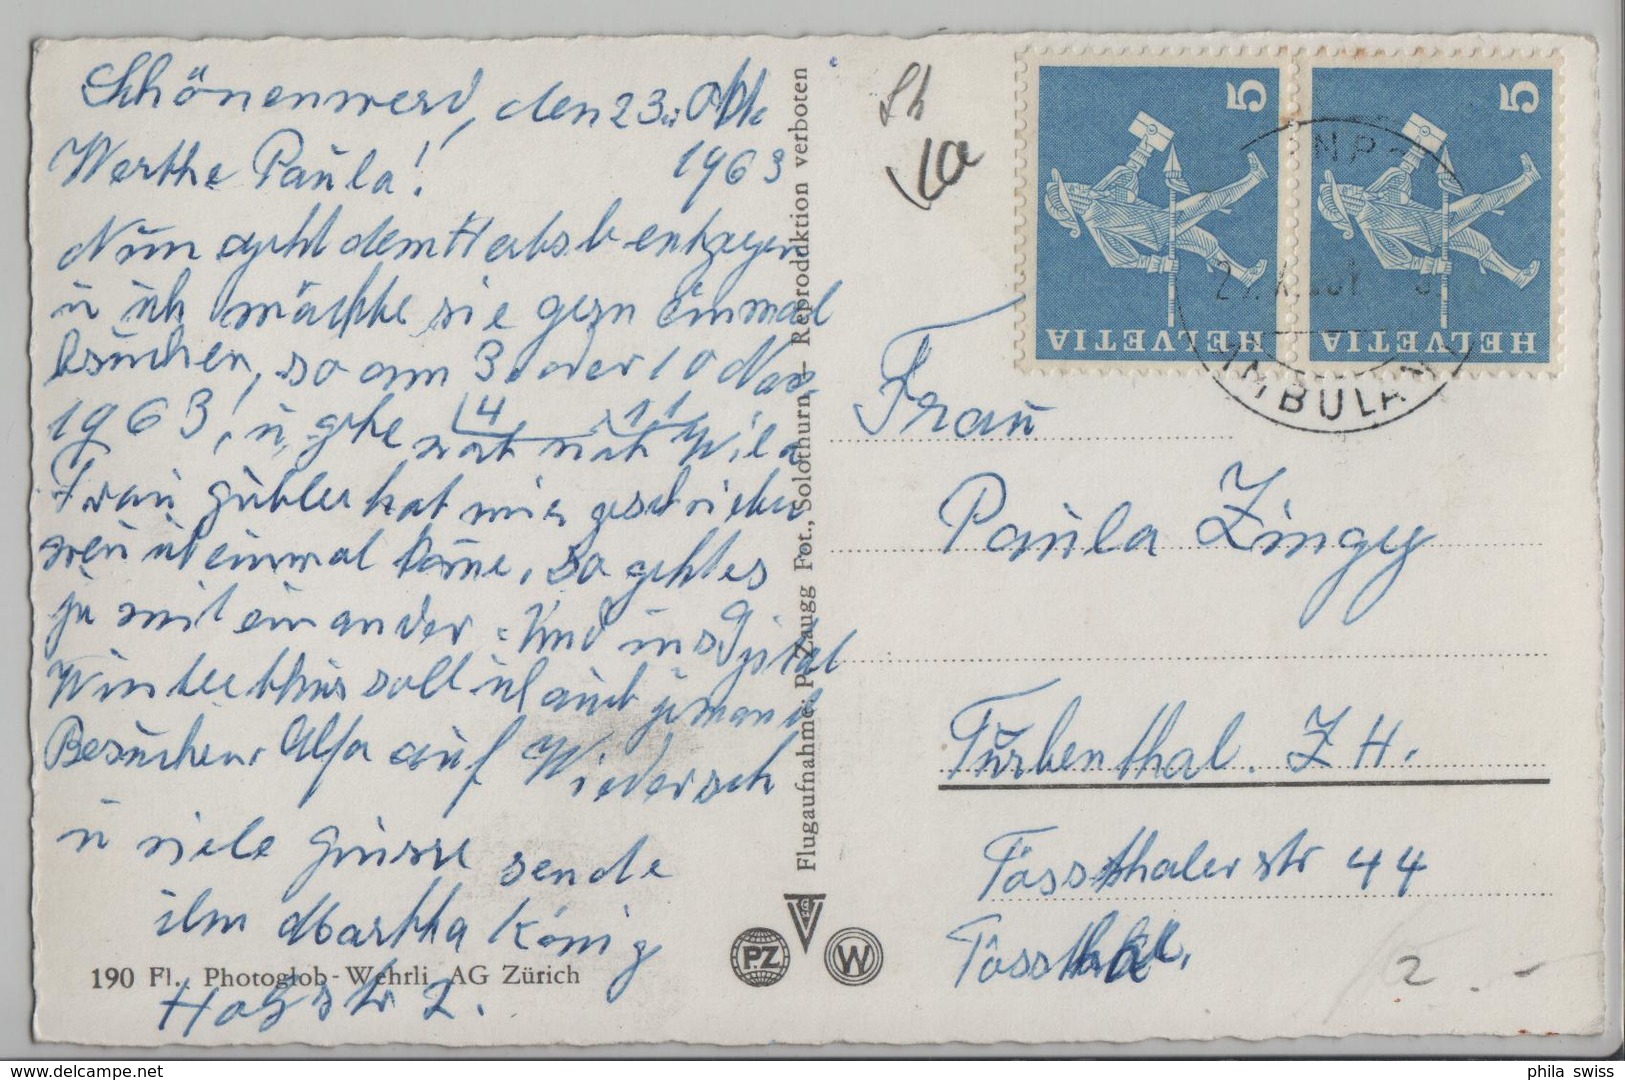 Schönenwerd, den 23. Okt.
1963
Werthe Paula!
Nun geht dem Herbst entgegen
u ich möchte sie gern einmal
besuchen, so am 3. oder 10 Nov.
1963, u, gehe nach Wila
4 11
Frau Gübler hat mir geschrieben
wen ich einmal kome, so geht es
ja mit einander. Und ins Spital
Winterthur soll ich auch jemand
Besuchen. Also auf Wiedersch
u viele Grüsse sende
ihn Martha König
str 2.
190 Fl. Photoglob-Wehrli AG Zürich
Flugaufnahme P. Zaugg Fot., Solothurn – Reproduktion verboten
PZ
W
HELVETIA 5
HELVETIA 5
AMBULANT
Frau
Paula Zingg
Turbenthal. ZH.
Tössthalerstr 44
Tössthal.
2. -
phila swiss